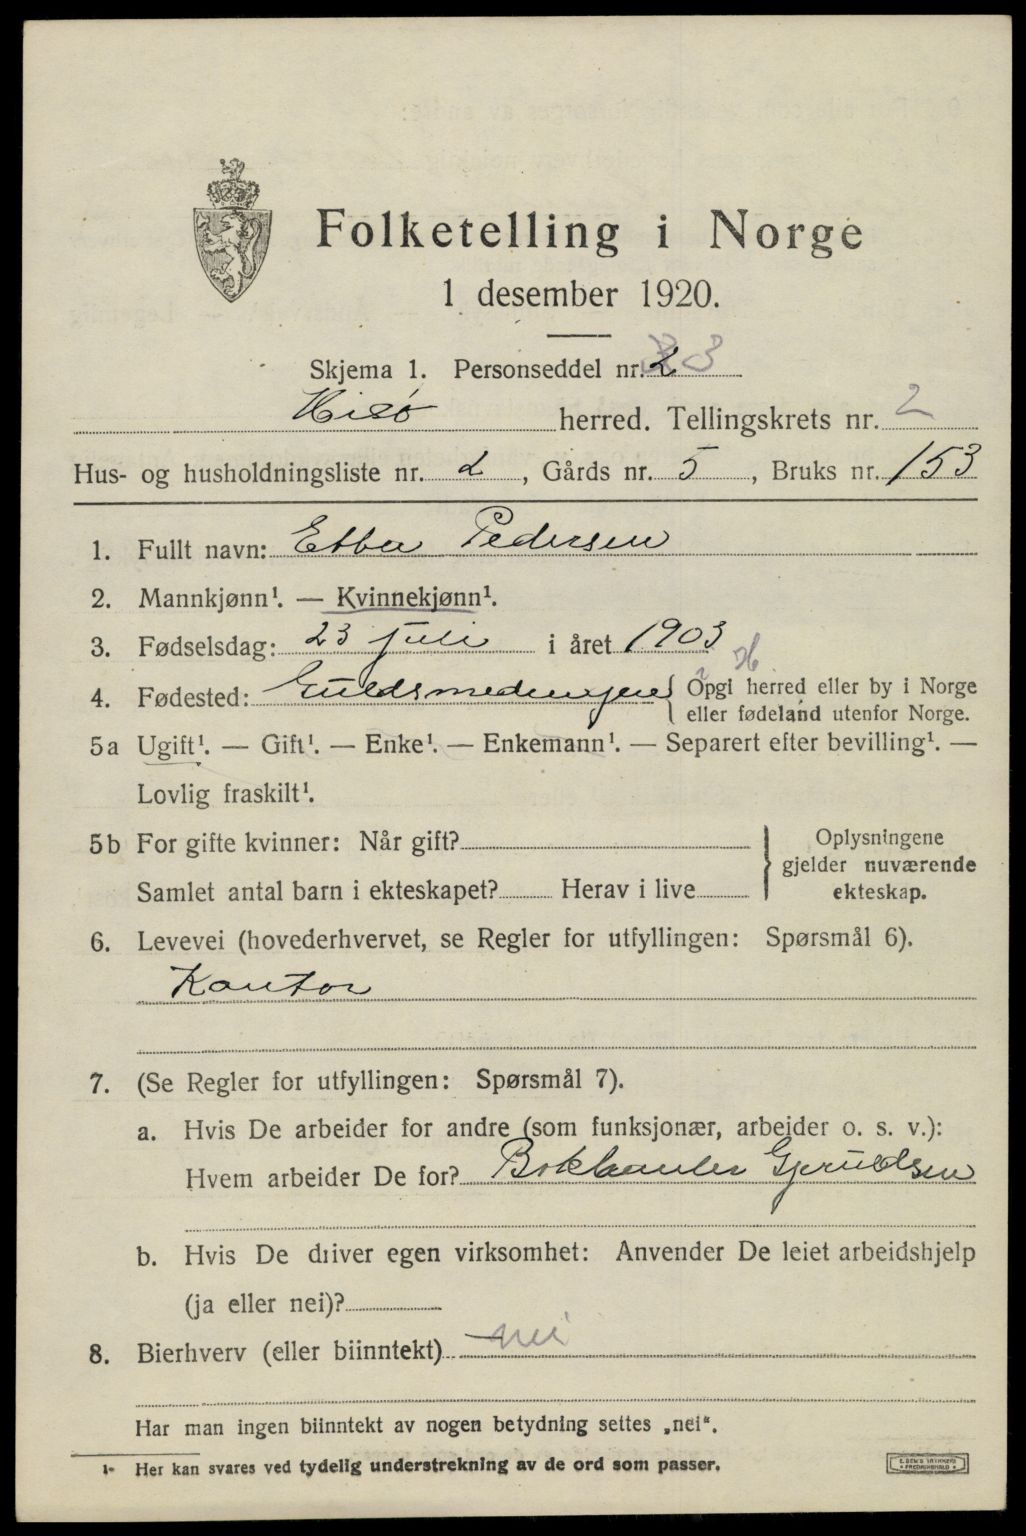 Folketelling i Norge
1 desember 1920.
Skjema 1. Personseddel nr. 3
Hisø herred. Tellingskrets nr. 2
Hus- og husholdningsliste nr. 2, Gårds nr. 5, Bruks nr. 153
1. Fullt navn: Ebba Pedersen
2. Mannkjønn¹. — Kvinnekjønn¹.
3. Fødselsdag: 23 juli i året 1903
4. Fødested: { Opgi herred eller by i Norge
eller fødeland utenfor Norge.
5a Ugift¹. — Gift¹. — Enke¹. — Enkemann¹. — Separert efter bevilling¹. —
Lovlig fraskilt¹.
5b For gifte kvinner: Når gift? } Oplysningene
gjelder nuværende
Samlet antal barn i ekteskapet? Herav i live ekteskap.
6. Levevei (hovederhvervet, se Regler for utfyllingen: Spørsmål 6).
Kontor
7. (Se Regler for utfyllingen: Spørsmål 7).
a. Hvis De arbeider for andre (som funksjonær, arbeider o. s. v.):
Hvem arbeider De for? Gjeruldsen
b. Hvis De driver egen virksomhet: Anvender De leiet arbeidshjelp
(ja eller nei)?
8. Bierhverv (eller biinntekt) nei
Har man ingen biinntekt av nogen betydning settes „nei“.
1- Her kan svares ved tydelig understrekning av de ord som passer.